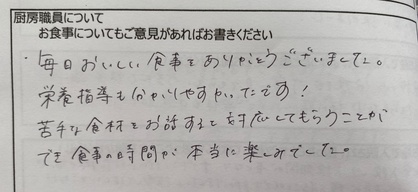 厨房職員について
お食事についてもご意見があればお書きください
・毎日おいしい食事をありがとうございました。
栄養指導も分かりやすかったです！
苦手な食材をお話すると対応してもらうことが
でき食事の時間が本当に楽しみでした。